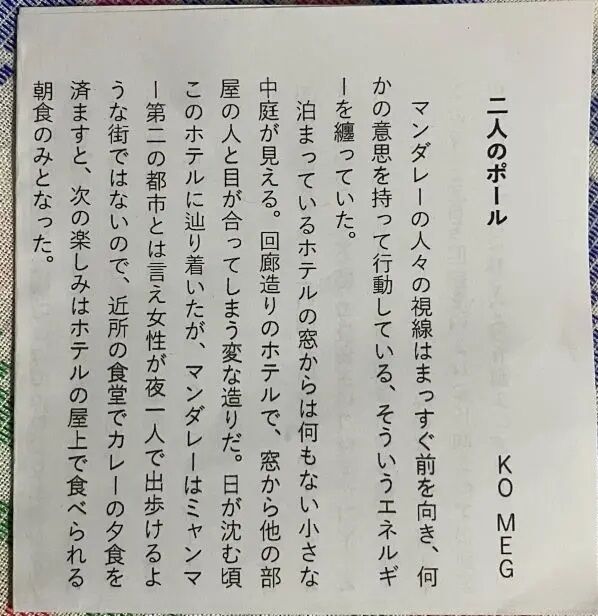 二人のポール
KO MEG
マンダレーの人々の視線はまっすぐ前を向き、何
かの意思を持って行動している、そういうエネルギ
ーを纏っていた。
泊まっているホテルの窓からは何もない小さな
中庭が見える。回廊造りのホテルで、窓から他の部
屋の人と目が合ってしまう変な造りだ。日が沈む頃
このホテルに辿り着いたが、マンダレーはミャンマ
ー第二の都市とは言え女性が夜一人で出歩けるよ
うな街ではないので、近所の食堂でカレーの夕食を
済ますと、次の楽しみはホテルの屋上で食べられる
朝食のみとなった。